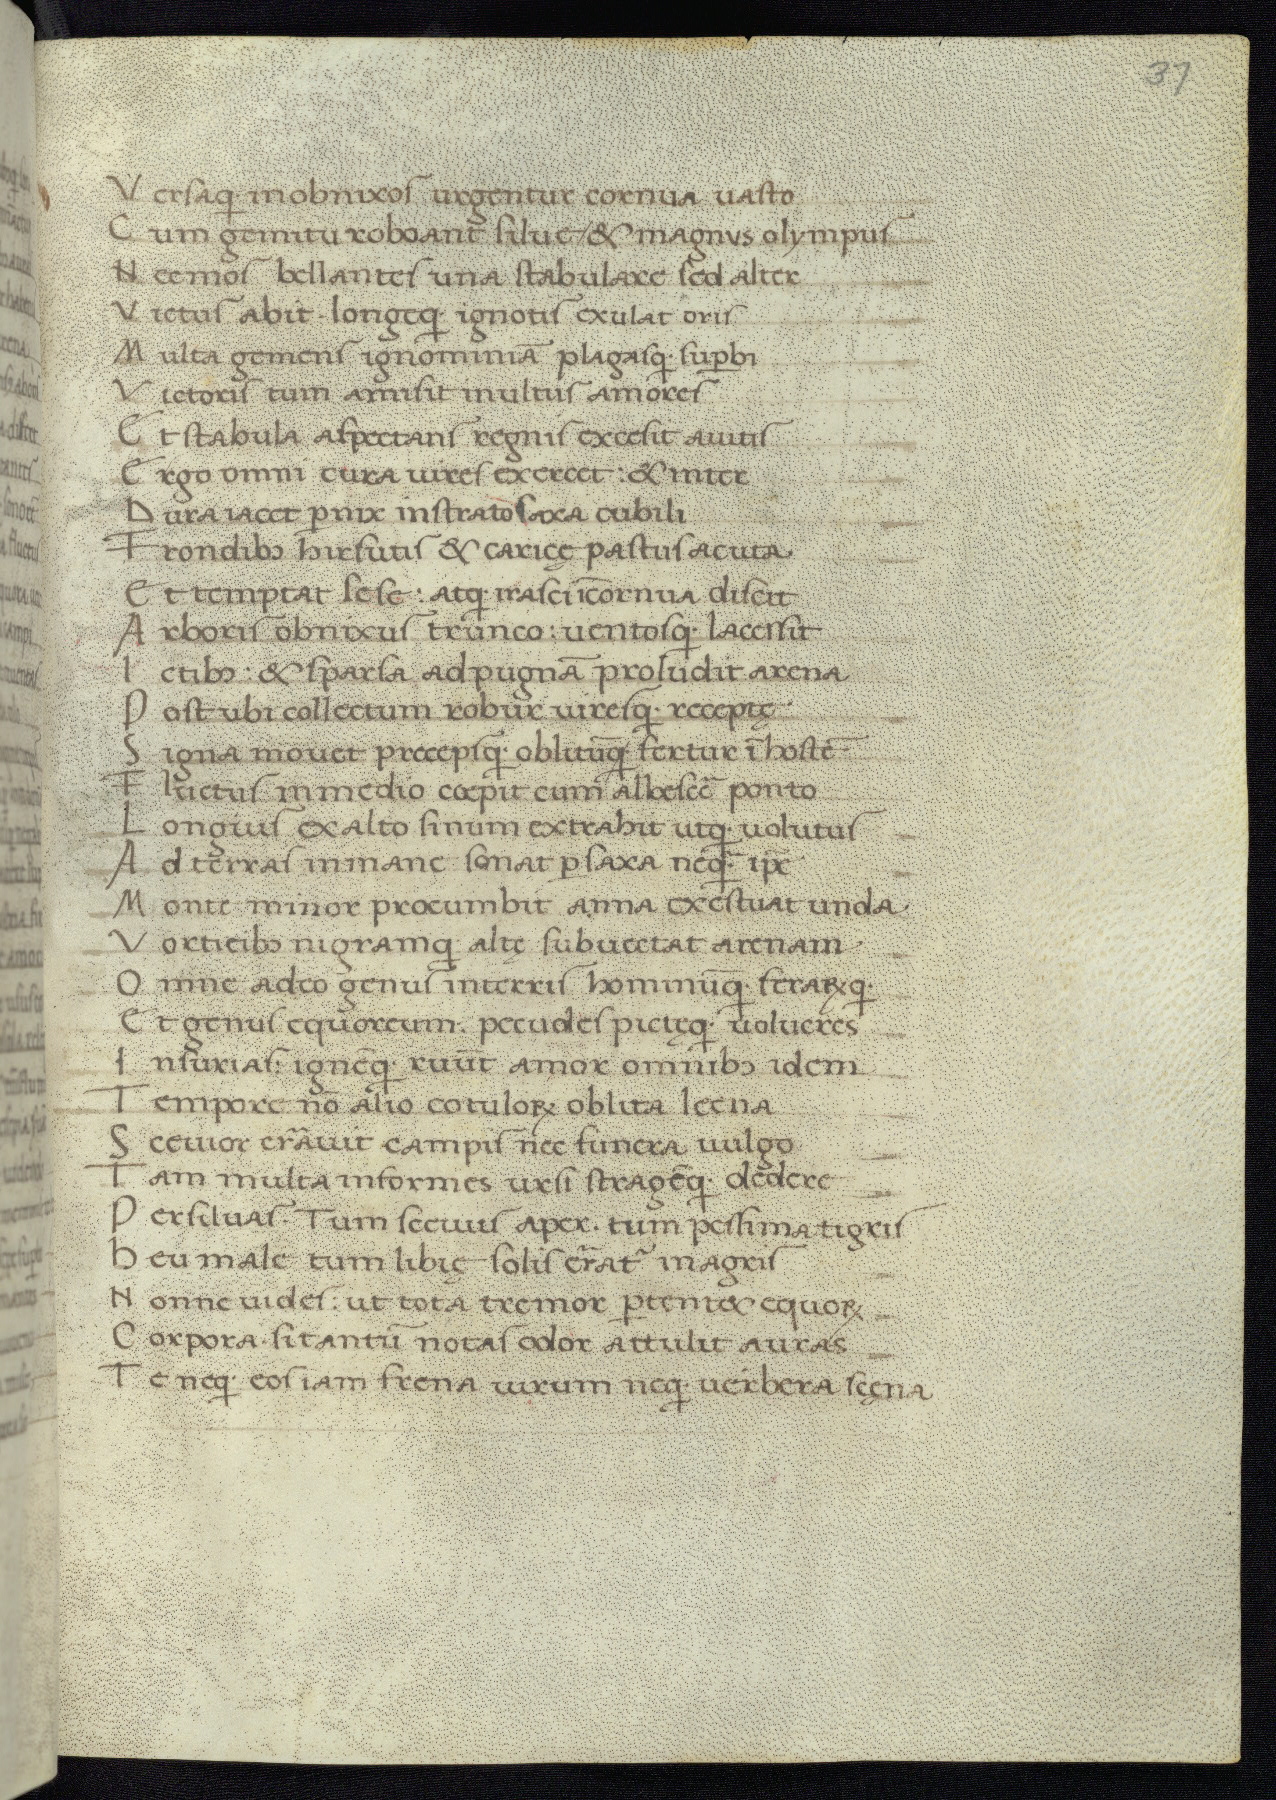 37
Versaq; inobnixos urgentur cornua uasto
Cum gemitu roboant silue / & magnus olympus
Nec mos bellantes una stabulare sed alter
Victus abit longeq; ignotis exulat oris
Multa gemens ignominiā plagasq; supbi
Victoris tum amisit multus amores
Et stabula aspectans regnis excesit auitis
Ergo omni cura uires exercet : & inter
Dura iacet pnix instrato saxa cubili
Frondibꝫ hirsutis & caricę pastus acuta
Et temptat sese : atq; irasci ī cornua discit
Arboris obnixus trunco : uentosq; lacessit
Ictibꝫ : & sparsa ad pugnā proludit arena
Post ubi collectum robur uiresq; receptę
Signa mouet precepsq; oblitūq; fertur ī hostē
Fluctus in medio cœpit cum albescē ponto
Longius ex alto sinum extrahit utq; uolutus
Ad terras inmane sonat p saxa neq; ipē
Monte minor procumbit anna exęstuat unda
Vorticibꝫ nigramq; altę subuectat arenam
Omne adeo genus interris hominūq; feraꝝq;
Et genus equoreum. pecudes pictęq; uolucres
Insurias : ignēq; ruūt amor omnibꝫ idem
Tempore nō alio cotuloꝝ oblita leena
Sceuior errauit campis nec funera uulgo
Tam multa informes ursi stragēq; dedere
Per siluas. Tum seeuus aper. tum pessima tigris
heu male tum libię solis errat' in agris
Nonne uides : ut tota tremor ptemt& equoꝝ
Corpora . si tantū notas odor attulit auras
Te neq; eos iam frena uirum neq; uerbera sęna